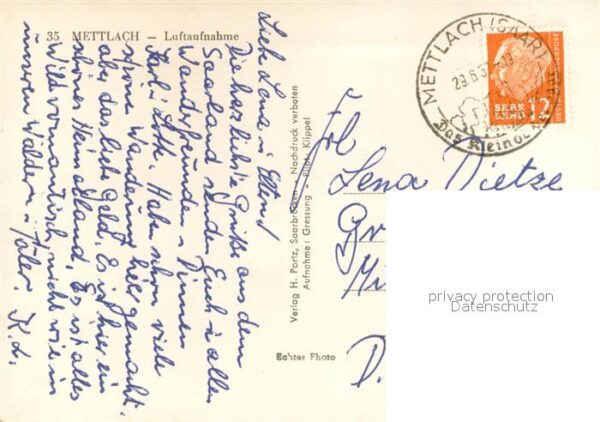 35 METTLACH — Luftaufnahme
Liebe Lena u. Eltern!
Die herzlichste Grüße aus dem
Saarland senden Euch u. allen
Wanderfreunden u. Innen
Karl u. Haben schon viele
schöne Wanderung hier gemacht.
aber das liebe Geld. Es ist hier ein
schönes Heimatland. Es ist alles
Wild romantisch, nicht wie in
unseren Wälder u. Täler. K. L.
Verlag H. Portz, Saarbrücken - Nachdruck verboten
Aufnahme: Gressung - Pilot: Klippel
Echtes Photo
METTLACH (SAAR)
29.6.5
Das Kleinod
SAAR
LAND 12
DEUTSCHE BUNDESPOST
Frl
Lena Dietze
Gr
D.
privacy protection
Datenschutz